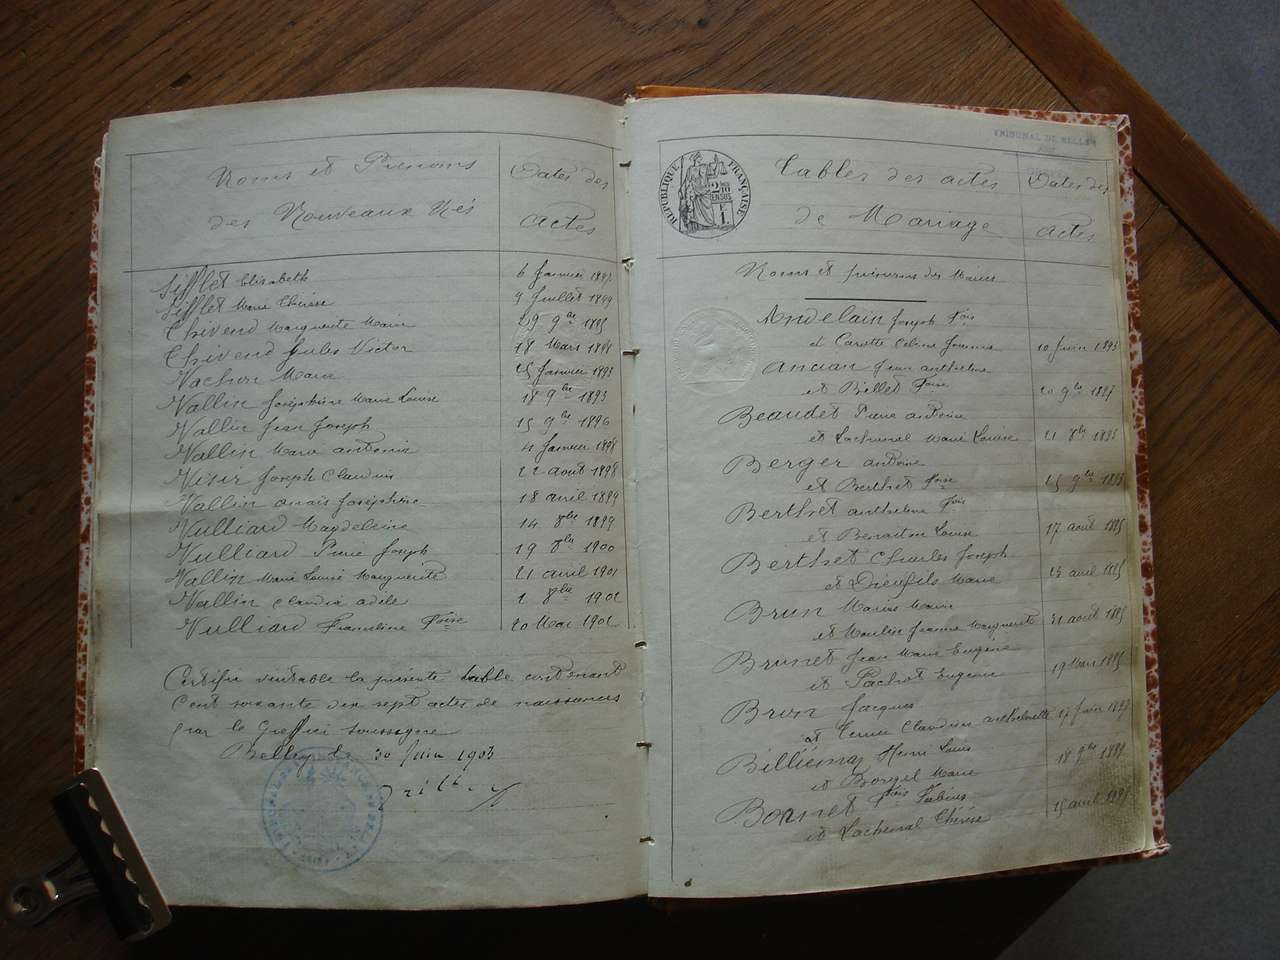 Noms et Prenoms
des Nouveaux Nés
Dates des
actes
Sifflet Elisabeth 6 Janvier 1897
Sifflet Marie Thérèse 9 Juillet 1899
Thivend Marguerite Marie 29 9bre 1895
Thivend Jules Victor 18 Mars 1898
Vachon Marie 25 Janvier 1893
Vallin Joséphine Marie Louise 18 9bre 1893
Vallin Jean Joseph 15 9bre 1896
Vallin Marie antonia 4 Janvier 1898
Joseph Claudius 22 aout 1898
Vallin anaïs Joséphine 18 avril 1899
Vulliard Magdeleine 14 8bre 1899
Vulliard Pierre Joseph 19 8bre 1900
Vallin Marie Louise Marguerite 21 avril 1901
Vallin Claudia adèle 1 8bre 1901
Vulliard Francoise 20 Mai 1902
Certifié véritable la présente table contenant
Cent soixante dix sept actes de naissances
par le Greffier soussigné
Belley le 30 Juin 1903
TRIBUNAL DE BELLEY
AIN
RÉPUBLIQUE FRANÇAISE
Tables des actes
de Mariage
Dates des
actes
Noms et prénoms des Mariés
Andelain Joseph fçois
et Carotte Celine Jeanne 10 Juin 1893
Ancian Jean anthelme
et Billet Fçoise 20 9bre 1897
Beaudet Pierre antoine
et Lachenal Marie Louise 21 8bre 1893
Berger antoine
et Berthet Fçoise 25 9bre 1893
Berthet anthelme fçois
et Benoiton Louise 17 aout 1895
Berthet Charles Joseph
et Dieufils Marie 23 avril 1895
Brun Marius Marie
et Moulin Jeanne Marguerite 31 aout 1895
Brunet Jean Marie Eugène
et Pachot Eugenie 19 Mars 1895
Brun Jacques
et Claudine anthelmette 17 Juin 1897
Billiémaz Henri Louis
et Borgel Marie 18 9bre 1899
Bonnet fçois Fabius
et Lachenal Thérèse 15 avril